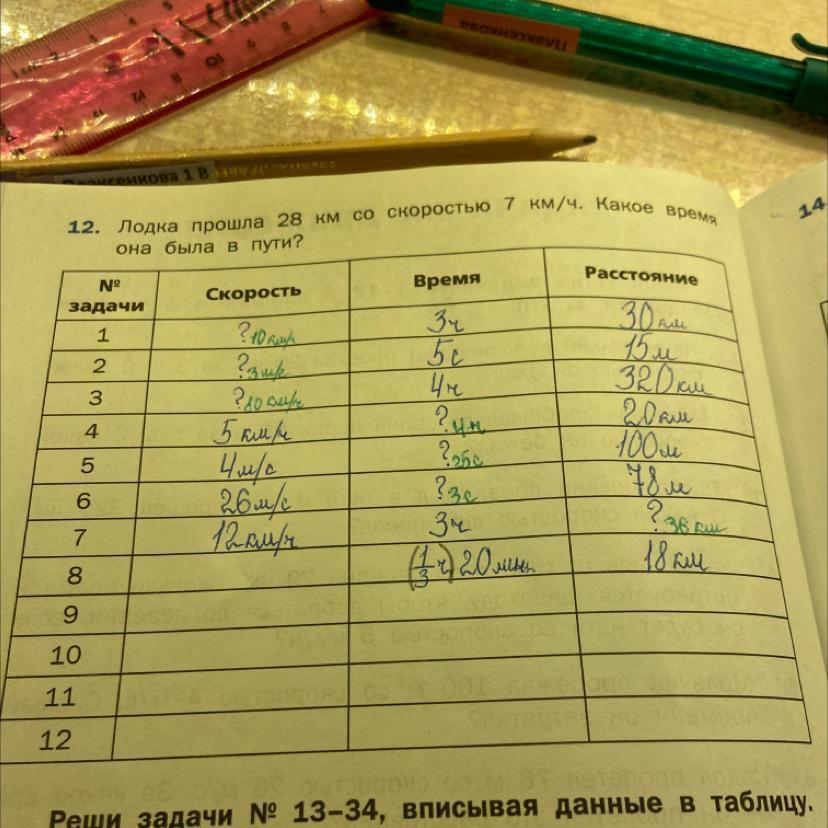 Плаксенкова
Плаксенкова 1 В
12. Лодка прошла 28 км со скоростью 7 км/ч. Какое время
она была в пути?
14
№ задачи Скорость Время Расстояние
1 ? 10 км/ч 3ч 30 км
2 ? 3м/с 5с 15м
3 ? 80 км/ч 4ч 320 км
4 5 км/ч ? 4ч 20км
5 4м/с ? 25с 100м
6 26м/с ? 3с 78м
7 12км/ч 3ч ? 36 км
8 (1/3 ч) 20 мин. 18 км
9
10
11
12
Реши задачи № 13–34, вписывая данные в таблицу.